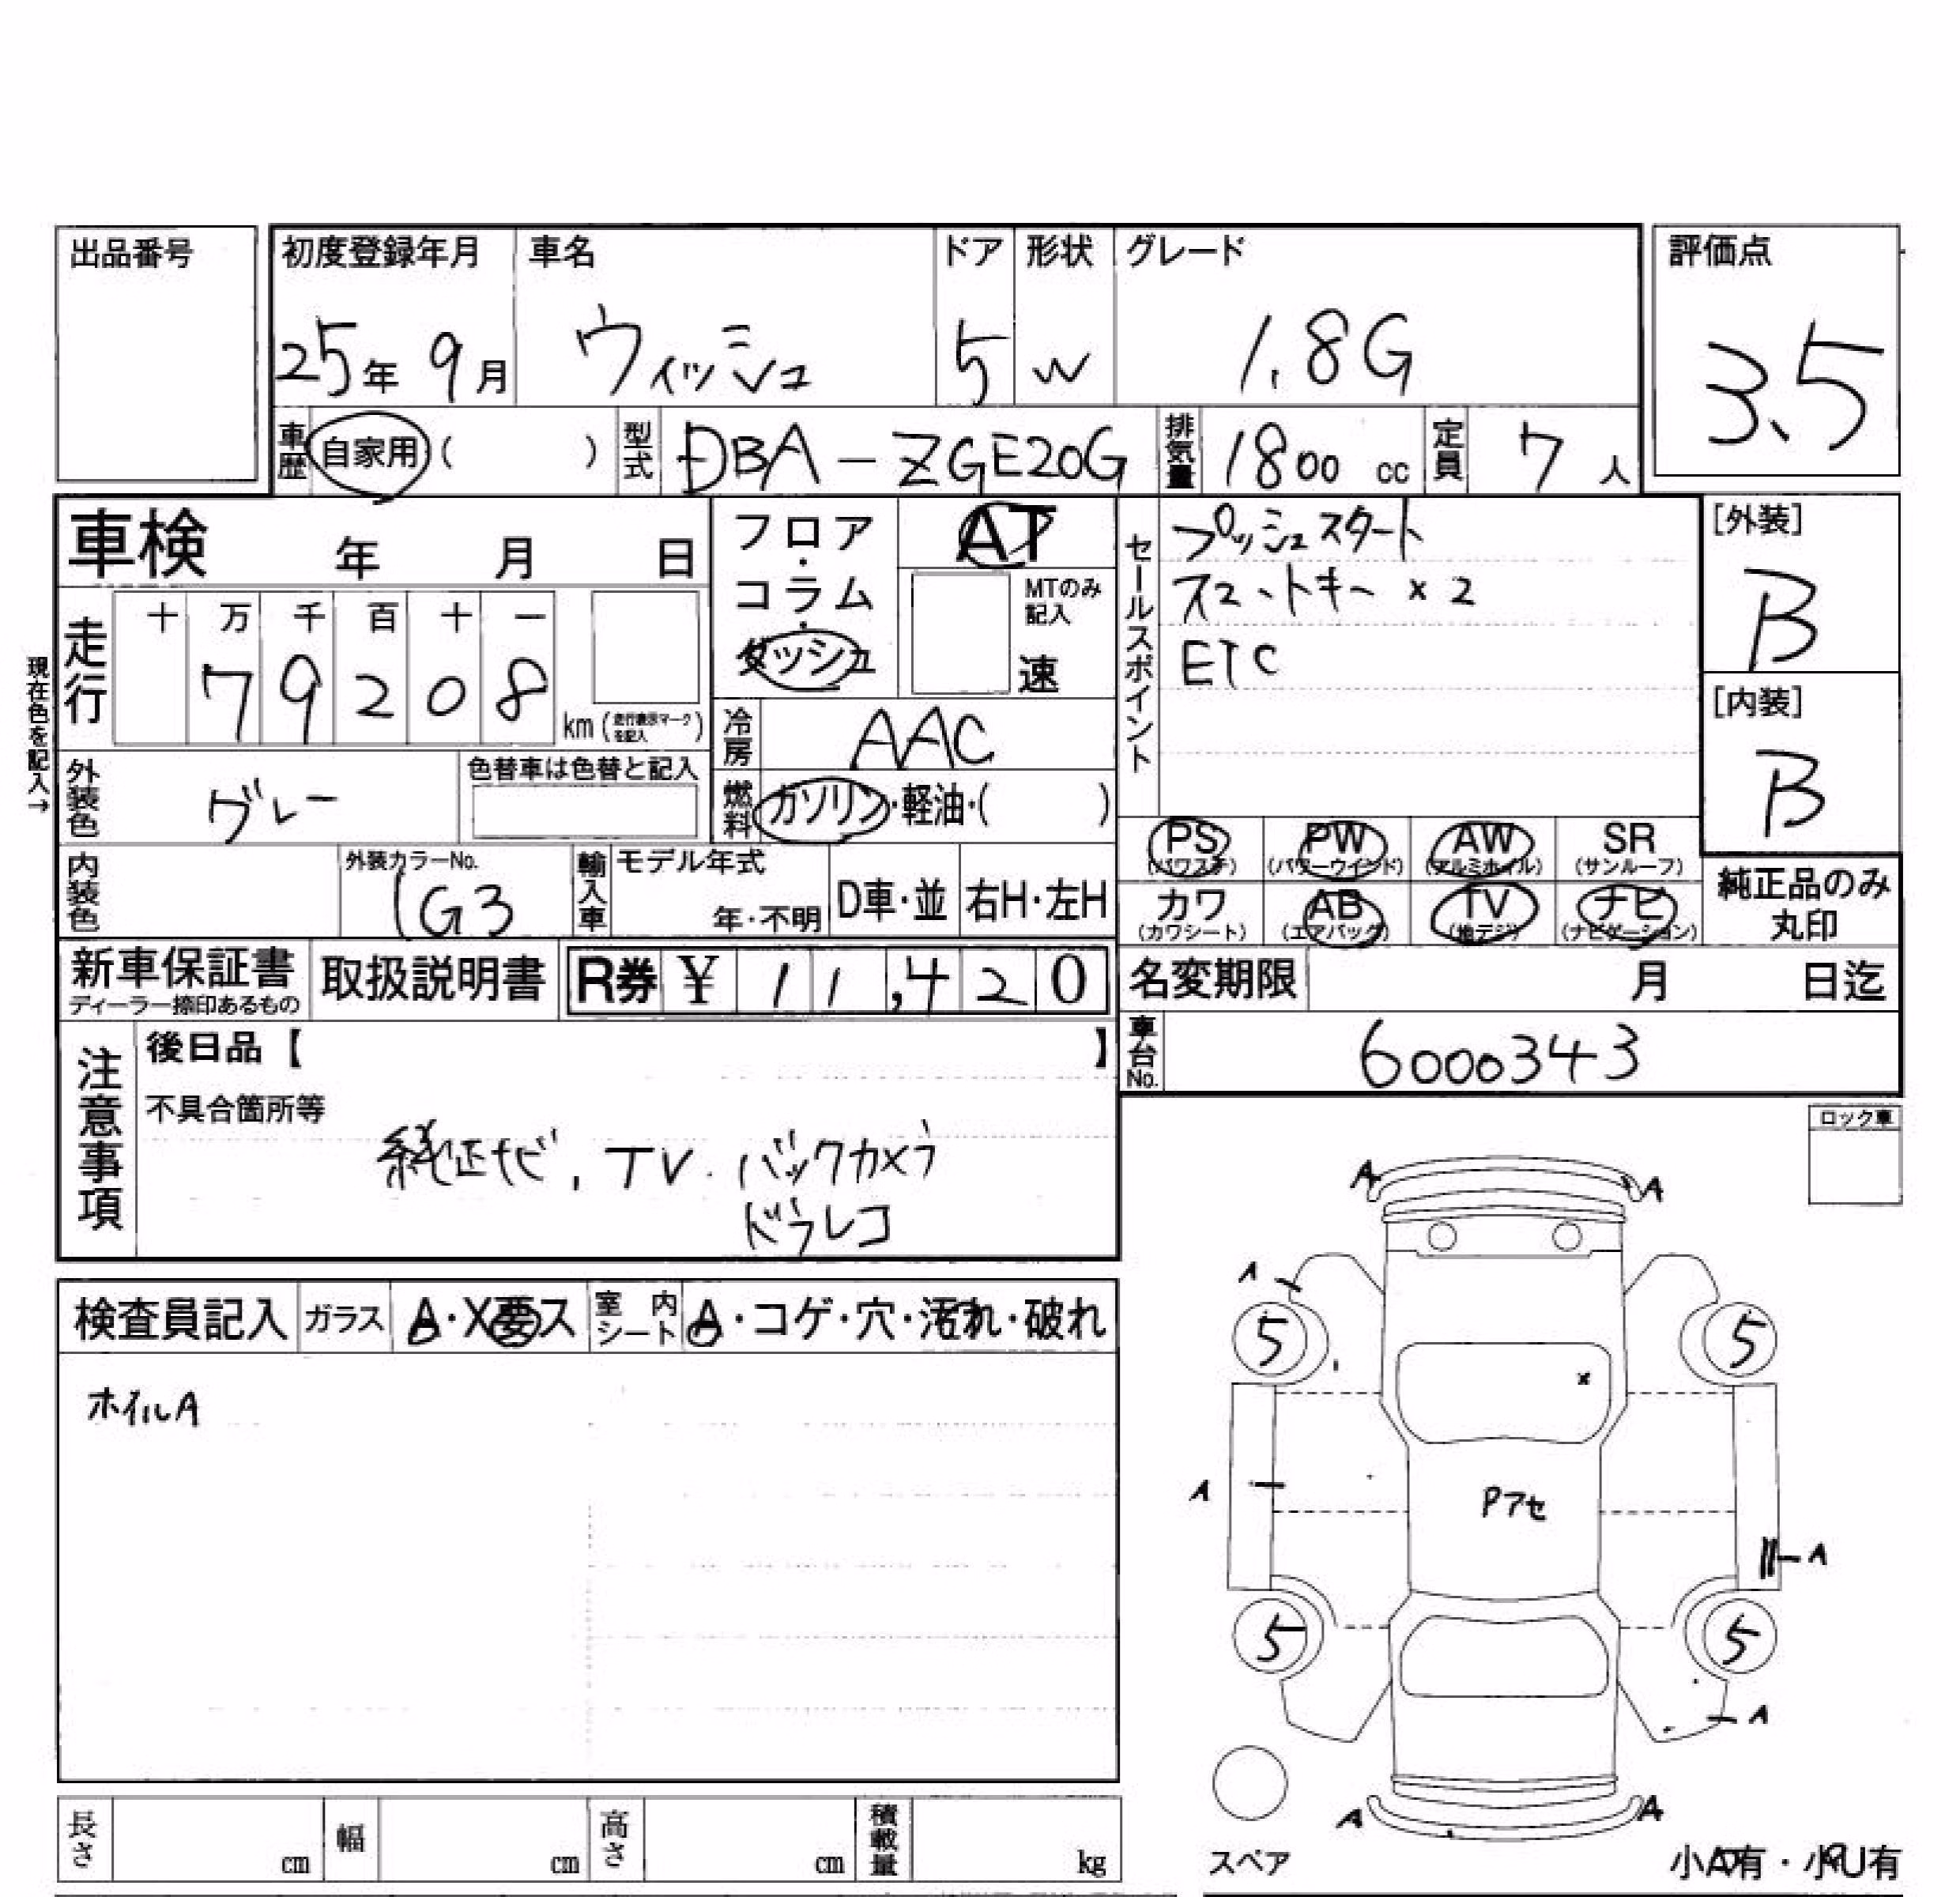 出品番号
初度登録年月 車名 ドア 形状 グレード 評価点
25年 9月 ウィッシュ 5 W 1.8G 3.5
車歴 自家用 ( ) 型式 DBA-ZGE20G 排気量 1800 cc 定員 7 人
車検 年 月 日
フロア・コラム・ダッシュ
AT
MTのみ記入
速
セールスポイント
プッシュスタート
スマートキー ×2
ETC
[外装]
B
[内装]
B
現在色を記入→
走行 十 万 千 百 十 一
79208 km (走行表示マークを記入)
冷房 AAC
外装色 グレー 色替車は色替と記入
燃料 ガソリン・軽油・( )
PS (パワステ) PW (パワーウインド) AW (アルミホイル) SR (サンルーフ)
カワ (カワシート) AB (エアバッグ) TV (地デジ) ナビ (ナビゲーション)
純正品のみ丸印
内装色 外装カラーNo. 1G3 輸入車 モデル年式 年・不明 D車・並 右H・左H
新車保証書 ディーラー捺印あるもの 取扱説明書 R券 ¥ 11,420
名変期限 月 日迄
車台No. 6000343
注意事項
後日品【 】
不具合箇所等
純正ナビ, TV. バックカメラ
ドラレコ
ロック車
検査員記入 ガラス A・X要ス 室内シート A・コゲ・穴・汚れ・破れ
ホイルA
A A
A
5 5
x
A
Pアセ
A
5 5
A
A A
スペア
小A有・小U有
長さ cm 幅 cm 高さ cm 積載量 kg